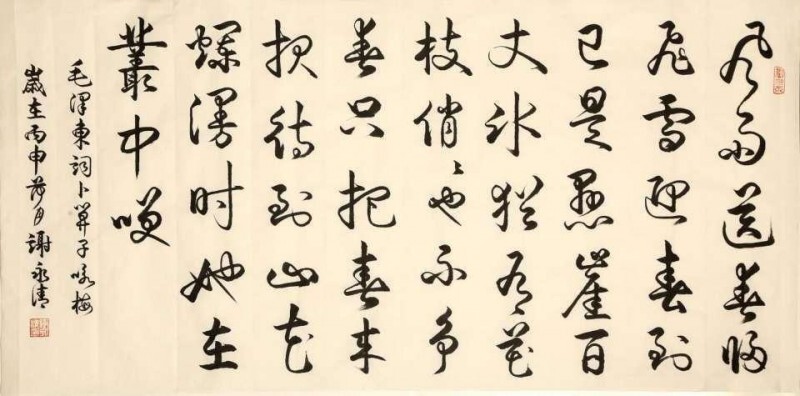 风雨送春归
飞雪迎春到
已是悬崖百
丈冰犹有花
枝俏〻也不争
春只把春来
报待到山花
烂漫时她在
叢中咲
毛澤東詞卜算子咏梅
歲在丙申荷月謝永清